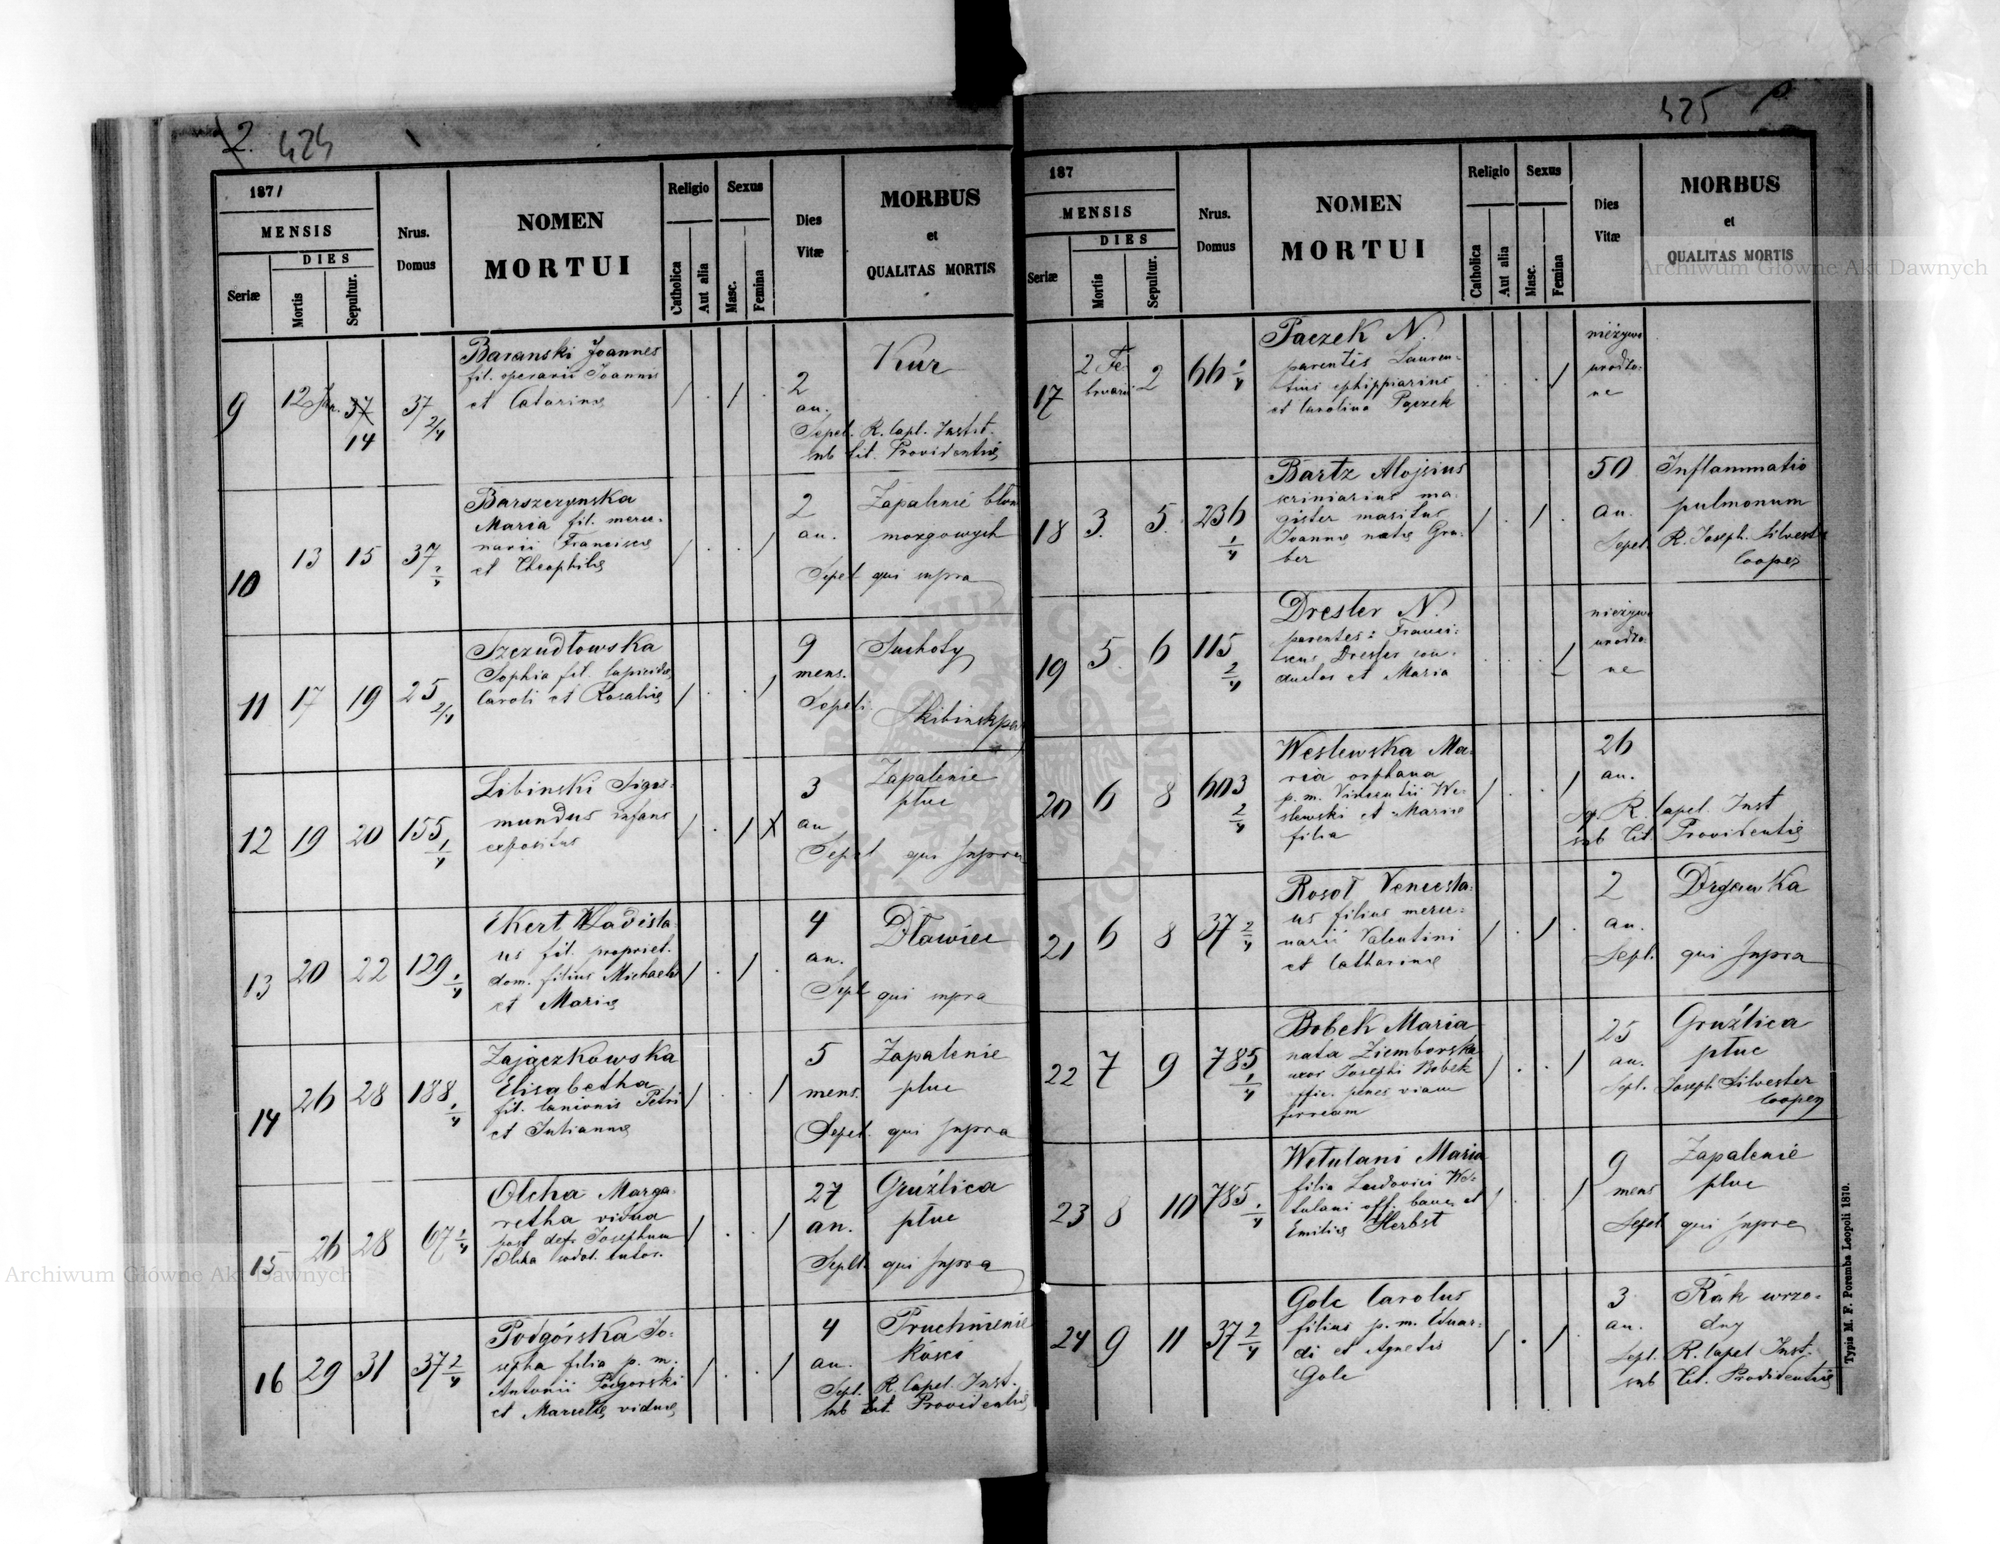 2. 424
1871
MENSIS
DIES
Seriæ
Mortis
Sepultur.
Nrus.
Domus
NOMEN
MORTUI
Religio
Catholica
Aut alia
Sexus
Masc.
Femina
Dies
Vitæ
MORBUS
et
QUALITAS MORTIS
9 12 Jan. 37 14 37 2/4
Baranski Joannes
fil. operarii Joannis
et Catarinæ
2
an.
Kur
Sepel. R. Capl. Instit.
sub tit. Providentiæ
10 13 15 37 2/4
Barszczynska
Maria fil. merce-
narii Francisci
et Theophilæ
2
an.
Zapalenie błon
mozgowych
Sepel qui supra
11 17 19 25 2/4
Szczudłowska
Sophia fil. lapicidæ
Caroli et Rosaliæ
9
mens.
Suchoty
Sepeli
12 19 20 155 1/4
Libinski Sigis-
mundus infans
expositus
3
an
Zapalenie
płuc
Sepel qui supra
13 20 22 129 1/4
Ekert Wladisla-
us fil. propriet.
dom. filius Michaelis
et Mariæ
4
an.
Dławiec
Sepel qui supra
14 26 28 188 1/4
Zajączkowska
Elisabetha
fil. lanionis Petri
et Julianna
5
mens.
Zapalenie
płuc
Sepel. qui supra
15 26 28 67 1/4
Olcha Marga-
retha vidua
post def. Josephum
Olcha
27
an.
Gruźlica
płuc
Seplt. qui supra
16 29 31 37 2/4
Podgórska Jo-
sepha filia p. m.
Antonii Podgorski
et Marcellæ viduæ
4
an.
Pruchnienie
Kości
Sepl. R. Capel. Inst.
sub tit. Providentiæ
425
187
MENSIS
DIES
Seriæ
Mortis
Sepultur.
Nrus.
Domus
NOMEN
MORTUI
Religio
Catholica
Aut alia
Sexus
Masc.
Femina
Dies
Vitæ
MORBUS
et
QUALITAS MORTIS
17 2 Fe-
bruarii 2 66 1/4
Paczek N.
parentes Lauren-
tius ephippiarius
et Carolina Paczek
nieżywo
urodzo-
ne
18 3. 5. 236 1/4
Bartz Alojsius
scriniarius ma-
gister maritus
Joannæ natæ Gru-
ber
50
an.
Inflammatio
pulmonum
Sepel. R. Joseph. Silvester
Cooper
19 5. 6 115 2/4
Drester N.
parentes: Franci-
scus Drester con-
ductor et Maria
nieżywo
urodzo-
ne
20 6 8 603 2/4
Weslewska Ma-
ria orphana
p. m. Vincentii We-
slewski et Mariæ
filia
26
an.
Sp. R. Capel. Inst
sub tit. Providentiæ
21 6 8 37 2/4
Rosoł Vencesla-
us filius merce-
narii Valentini
et Catharinæ
2
an.
Drgawka
Sepl. qui supra
22 7 9 785 1/4
Bobek Maria
nata Ziemborska
uxor Josephi Bobek
offic. penes viam
ferream
25
an.
Gruźlica
płuc
Sepl. Joseph Silvester
Cooper
23 8 10 785 1/4
Wetulani Maria
filia Ludovici We-
tulani off. banc. et
Emiliæ Herbst
9
mens
Zapalenie
płuc
Sepel qui supra
24 9 11 37 2/4
Golc Carolus
filius p. m. Eduar-
di et Agnetis
Golc
3
an.
Rak wrzo-
dny
Sepl. R. Capel Inst.
sub tit. Providentiæ
Typis M. F. Poremba Leopoli 1870.
Archiwum Główne Akt Dawnych
Archiwum Główne Akt Dawnych
ARCHIWUM GŁÓWNE AKT DAWNYCH